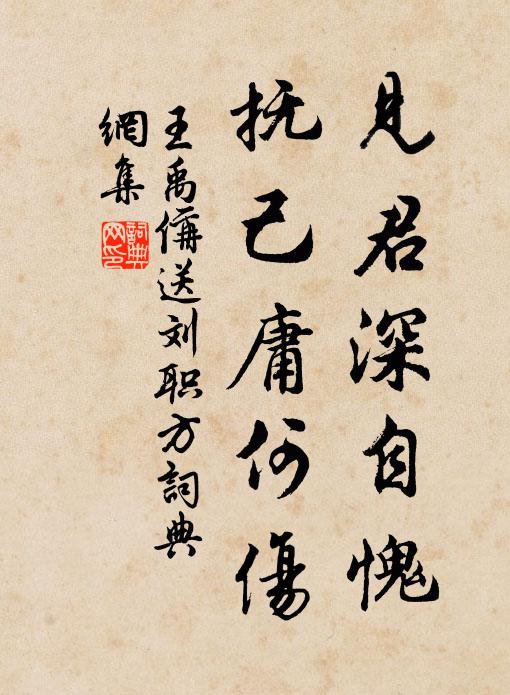 见君深自愧
抚己庸何傷
王禹偁送刘职方詞典
網集
詞典
网印